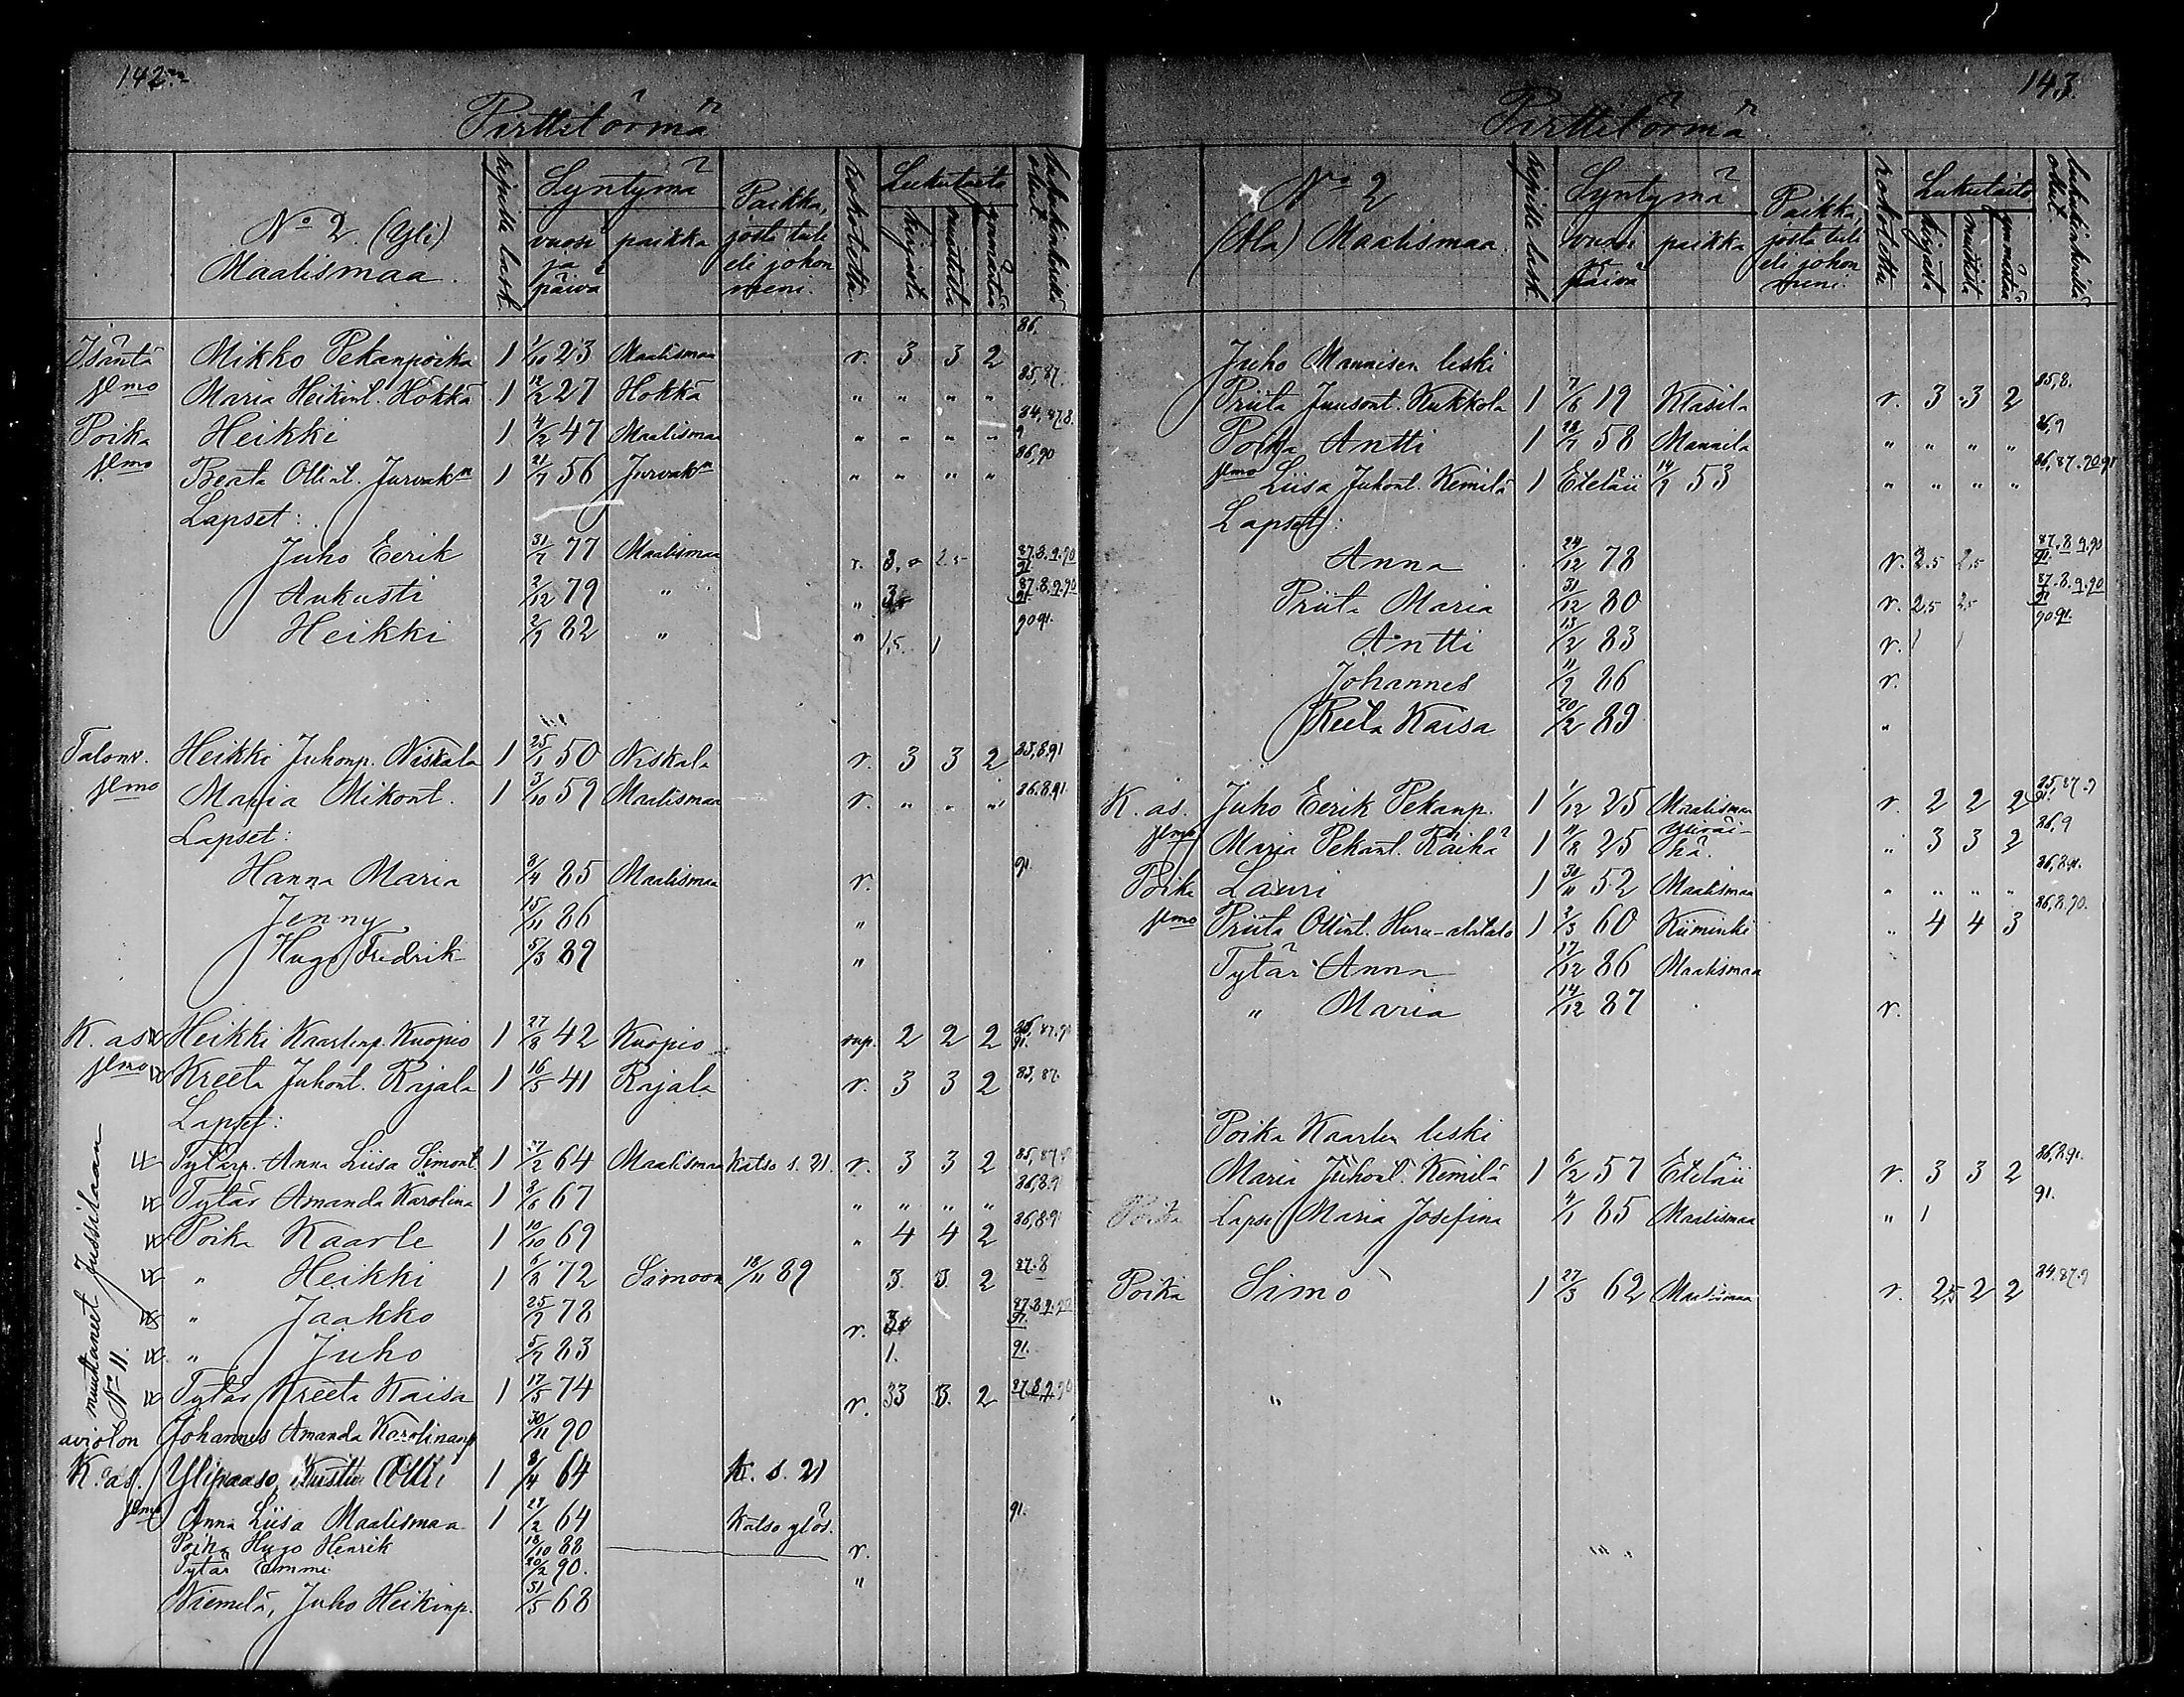 142
Pirttitörmä
No 2. (Yli)
Maalismaa.
Ripille lask.
Syntymä
vuosi ja päivä
paikka
Paikka, josta tuli eli johon meni.
rokotettu
Lukutaito
kirjasta
muistista
ymmärtää
lukukinkerillä ollut.
86.
Isäntä Mikko Pekanpoika 1 1/10 23 Maalismaa r. 3 3 2
85,87.
jlmo Maria Heikint. Hökkä 1 12/2 27 Hökkä " " " "
84,87.8.9
Poika Heikki 1 4/2 47 Maalismaa " " " "
86,90
jlmo Beata Ollint. Jurvak:n 1 21/7 56 Jurvak:n " " " "
Lapset:
Juho Eerik 31/7 77 Maalismaa r. 2.5 87.8.9.90 91.
Aukusti 2/12 79 " " 3 87.8.9.90 91.
Heikki 2/9 82 " " 1.5. 1 90 91.
Talonv. Heikki Juhonp. Niskala 1 25/1 50 Niskala r. 3 3 2 85,8.91
jlmo Maria Mikont. 1 3/10 59 Maalismaa r. " " " 86.8.91
Lapset:
Hanna Maria 8/4 85 Maalismaa r. 91.
Jenny 15/11 86 "
Hugo Fredrik 5/3 89 "
K. as. Heikki Kaarlenp. Kuopio 1 27/8 42 Kuopio rup. 2 2 2
jlmo Kreeta Juhont. Rajala 1 16/5 41 Rajala r. 3 3 2 85,87.
Lapset:
Tytärp. Anna Liisa Simont. 1 27/2 64 Maalismaa Katso s. 21. r. 3 3 2
Tytär Amanda Karolina 1 3/6 67 " " " " 86,8.9
Poika Kaarle 1 10/10 69 " 4 4 2 86,8.9
" Heikki 1 6/8 72 Simoon 18/11 89 3. 3. 2 87.8
" Jaakko 25/7 78 r. 3 87.8.9.90 91.
" Juho 5/7 83 1. 91.
Tytär Kreeta Kaisa 1 17/5 74 r. 2 87.8.9.90
muuttaneet Jussilaan
No 11.
avioton Johannes Amanda Karolinanp 30/11 90
K. as. Ylipaaso, Kustu Olli 1 8/4 64 K. s. 21
jlmo Anna Liisa Maalismaa 1 27/2 64 Katso ylös. 91.
Poika Hugo Henrik 18/10 88 r.
Tytär Emmi 20/2 90. "
Niemelä, Juho Heikinp. 31/5 68
143.
Pirttitörmä
No 2
(Ala) Maalismaa.
Ripille lask.
Syntymä
vuosi ja päivä
paikka
Paikka, josta tuli eli johon meni.
rokotettu
Lukutaito
kirjasta
muistista
ymmärtää
lukukinkerillä ollut.
Juho Mannisen leski
85,8.
Priita Juusont. Kukkola 1 7/6 19 Klasila r. 3 3 2
86,9
Poika Antti 1 28/7 58 Mannila " " " "
86,87.90.91
jlmo Liisa Juhont. Kemilä 1 Eteläii 14/9 53 " " " "
Lapset:
Anna 24/12 78 r. 2.5 2.5 87.8.9.90 91.
Priita Maria 31/12 80 r. 2.5 2.5 87.8.9.90 91
Antti 13/2 83 r. 1 1 90.91.
Johannes 11/9 86 r.
Reeta Kaisa 20/2 89 "
K. as. Juho Eerik Pekanp. 1 1/12 25 Maalismaa r. 2 2 2 85,87.9 91.
jlmo Maria Pekant. Räihä 1 11/8 25 " 3 3 2 86,9
Poika Lauri 1 30/11 52 Maalismaa " " " " 86,8.91.
jlmo Priita Ollint. Huru-alatalo 1 2/3 60 Kiiminki " 4 4 3 86,8.90.
Tytär Anna 17/12 86 Maalismaa
" Maria 14/12 87 r.
Poika Kaarlen leski
Maria Juhont. Kemilä 1 6/2 57 Eteläii r. 3 3 2 86,8.91.
Poika Lapsi Maria Josefina 4/1 85 Maalismaa " 1 91.
Poika Simo 1 27/3 62 Maalismaa r. 2.5 2 2 84.87.9
"